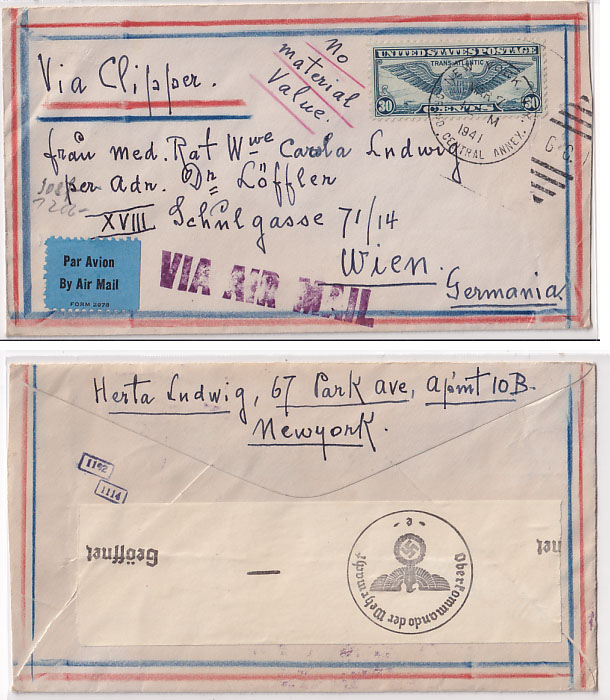 Via Clipper.
No
material
Value.
UNITED STATES POSTAGE
TRANS-ATLANTIC
30 CENTS 30
NEW YORK, N.Y.
M
1941
GD. CENTRAL ANNEX.
Fraŭ med. Rat Wwe Carola Ludwig
per Adr. Dr Löffler
XVIII Schŭlgasse 71/14
Wien.
Germania
Par Avion
By Air Mail
FORM 2978
VIA AIR MAIL
Herta Ludwig, 67 Park ave, apmt 10B.
Newyork.
1142
1114
Geöffnet
- e -
Oberkommando der Wehrmacht
net